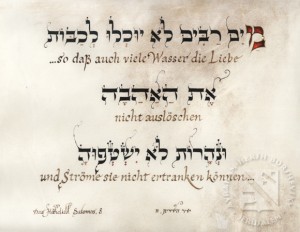 מים רבים לא יוכלו לכבות
...so daß auch viele Wasser die Liebe
את האהבה
nicht auslöschen
ונהרות לא ישטפוה
und Ströme sie nicht ertranken können...
Salomos. 8